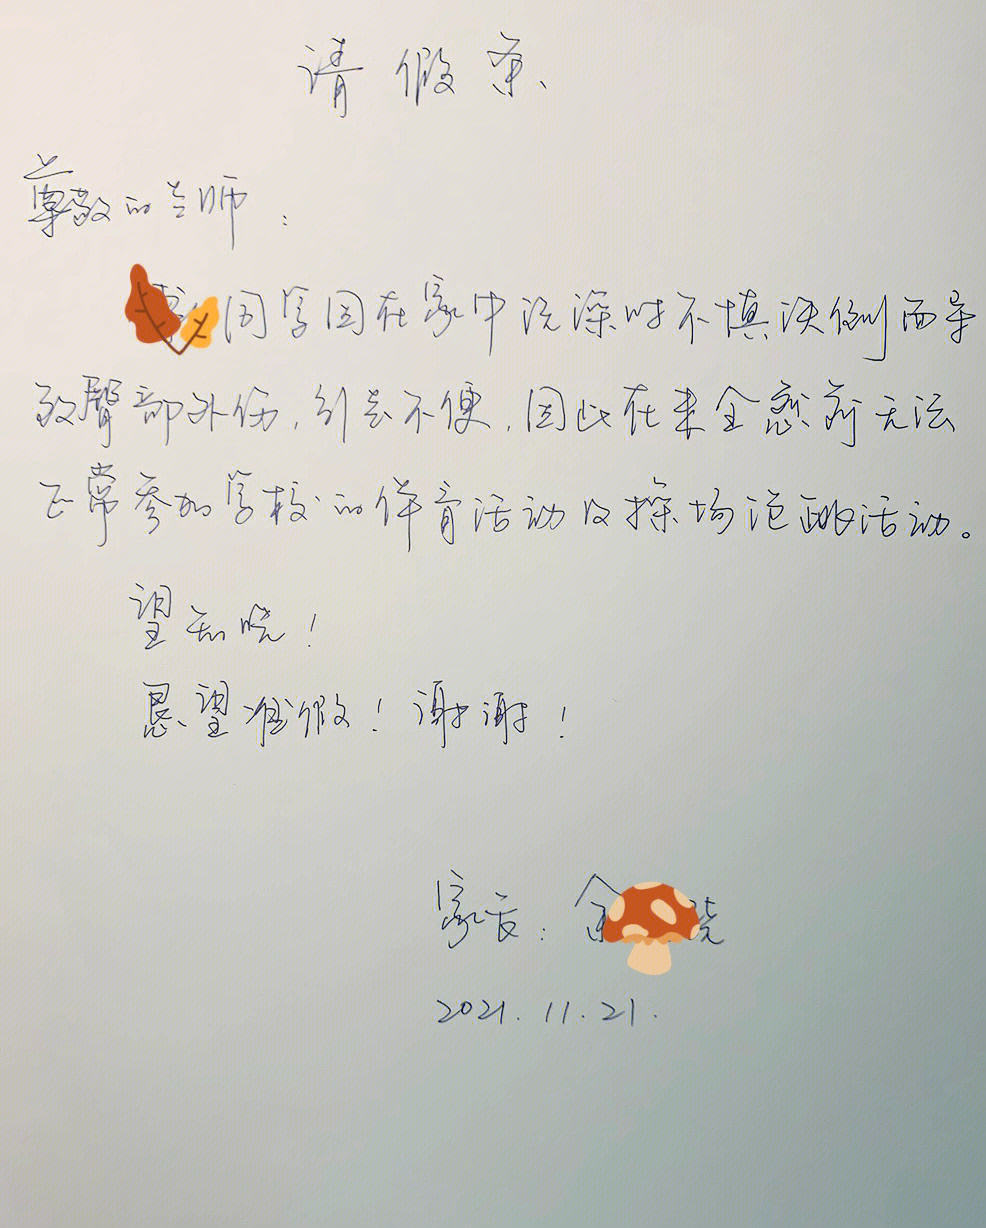 请假条
尊敬的老师:
同学因在家中洗澡时不慎跌倒而导
致臀部外伤,引起不便,因此在未全愈前无法
正常参加学校的体育活动及操场泡跳活动。
望知晓!
恳望准假!谢谢!
家长:
2021.11.21.